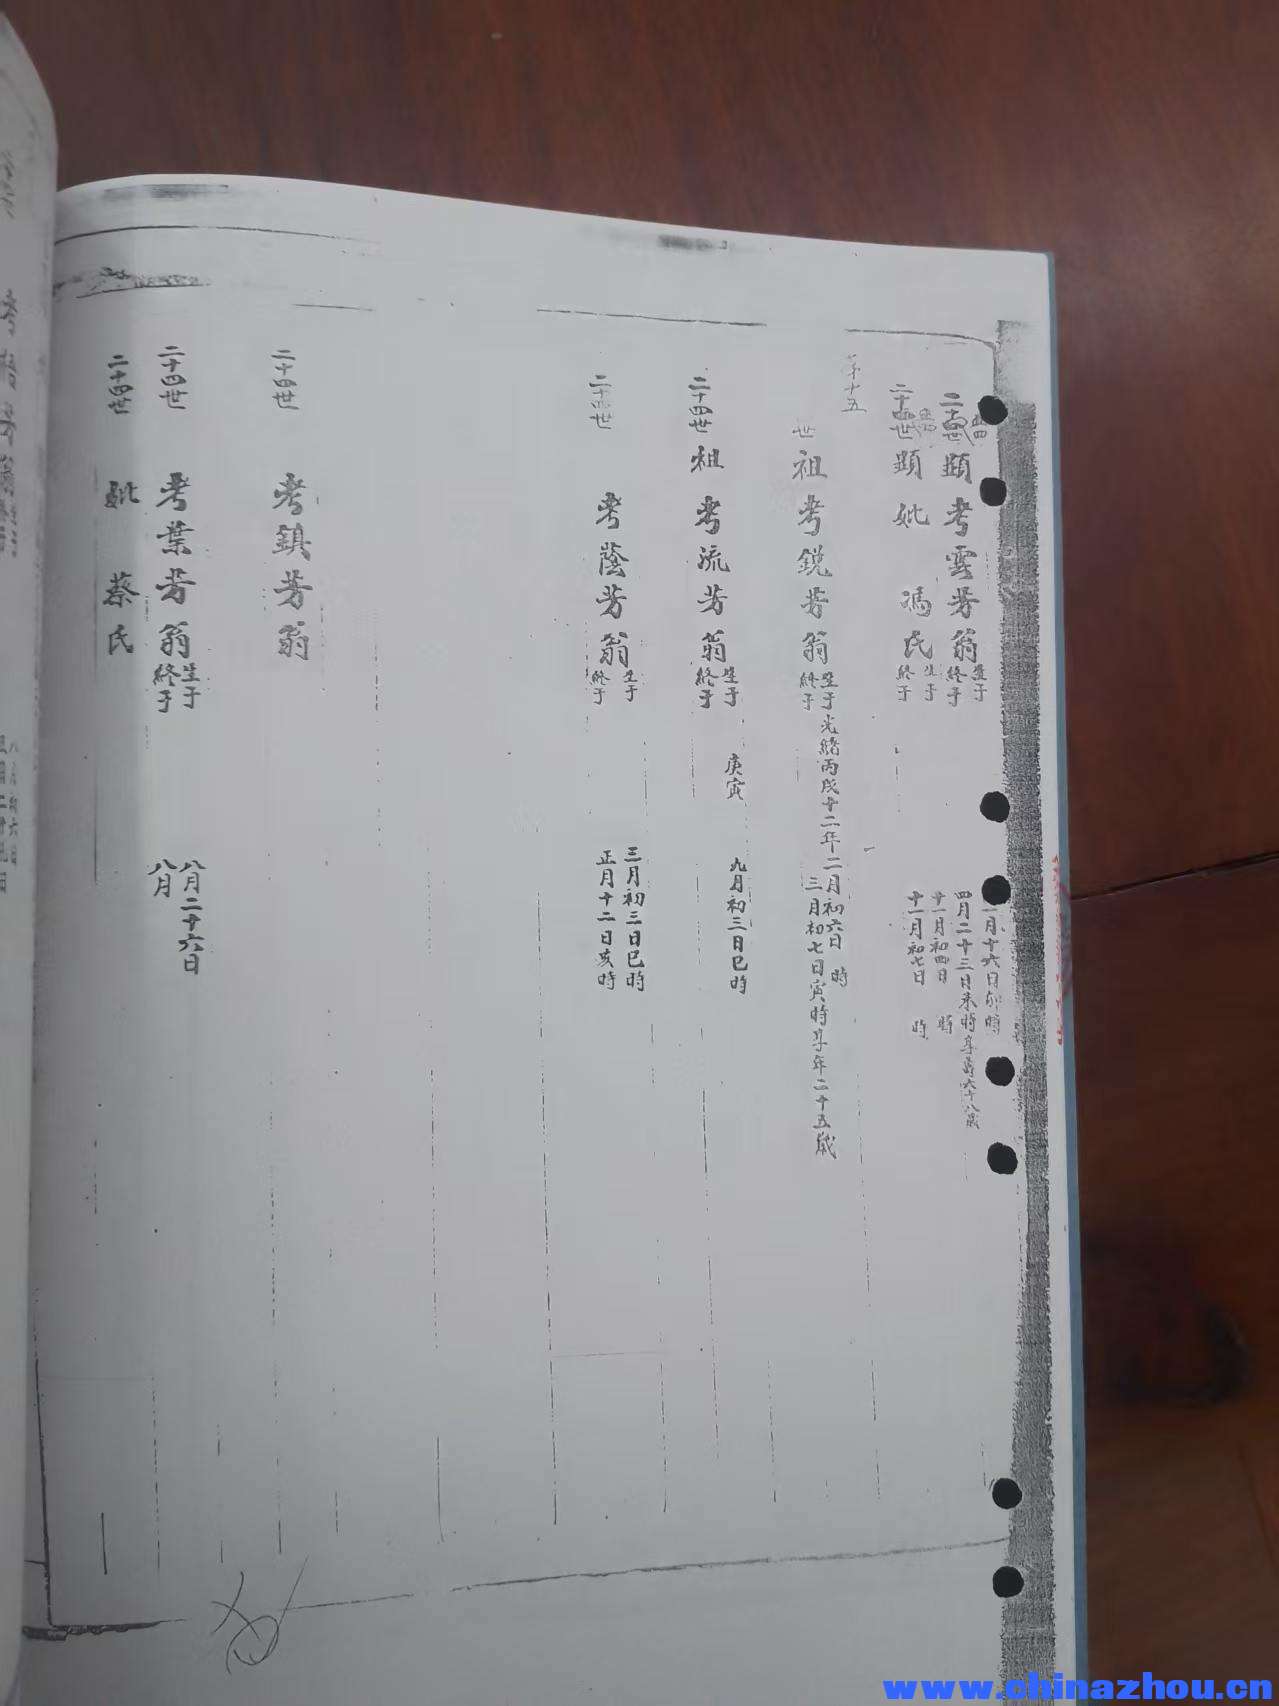 二十四世 顯考雲芳翁 生于 一月十六日卯時
終于 四月二十三日未時享壽六十八歲
二十四世 顯妣 馮氏 生于 十一月初四日 時
終于 十一月初七日 時
第十五
世祖考銳芳翁 生于光緒丙戌十二年二月初六日 時
終于 三月初七日寅時享年二十五歲
二十四世祖考流芳翁 生于 庚寅 九月初三日巳時
終于
二十四世 考蔭芳翁 生于 三月初三日巳時
終于 正月十二日亥時
二十四世 考鎮芳翁
二十四世 考葉芳翁 生于 八月二十六日
終于 八月
二十四世 妣 蔡氏
www.chinazhou.cn